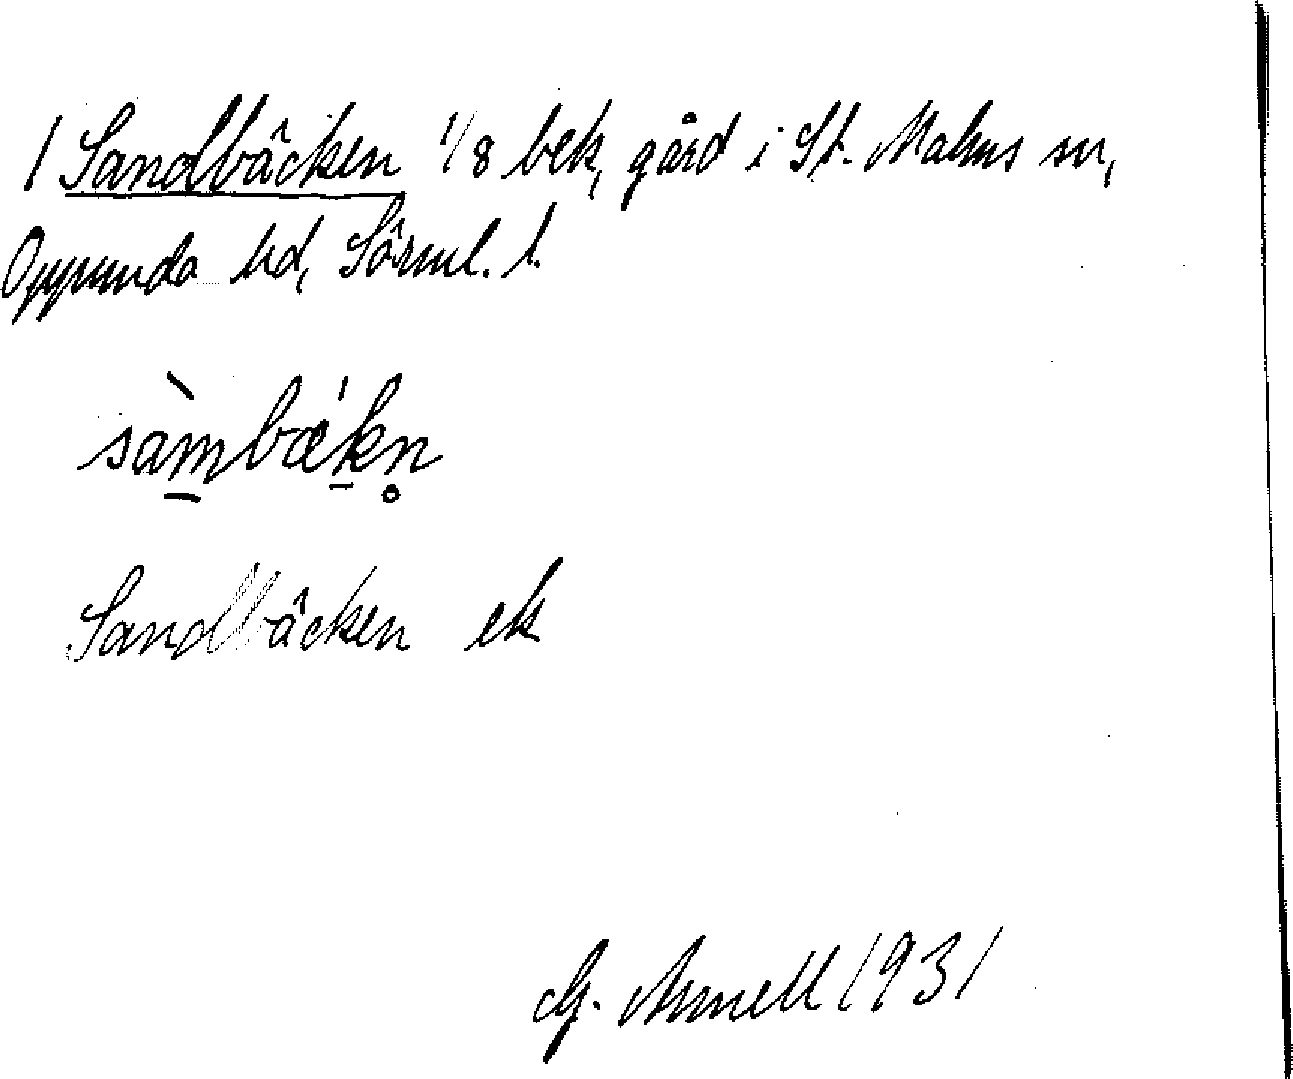 1 Sandbäcken 1/8 bek, gård i St. Malms sn,
Oppunda hd,Örml. l.
sàmbæ̍kn̥
Sandbäcken ek
G. Arnell 1931